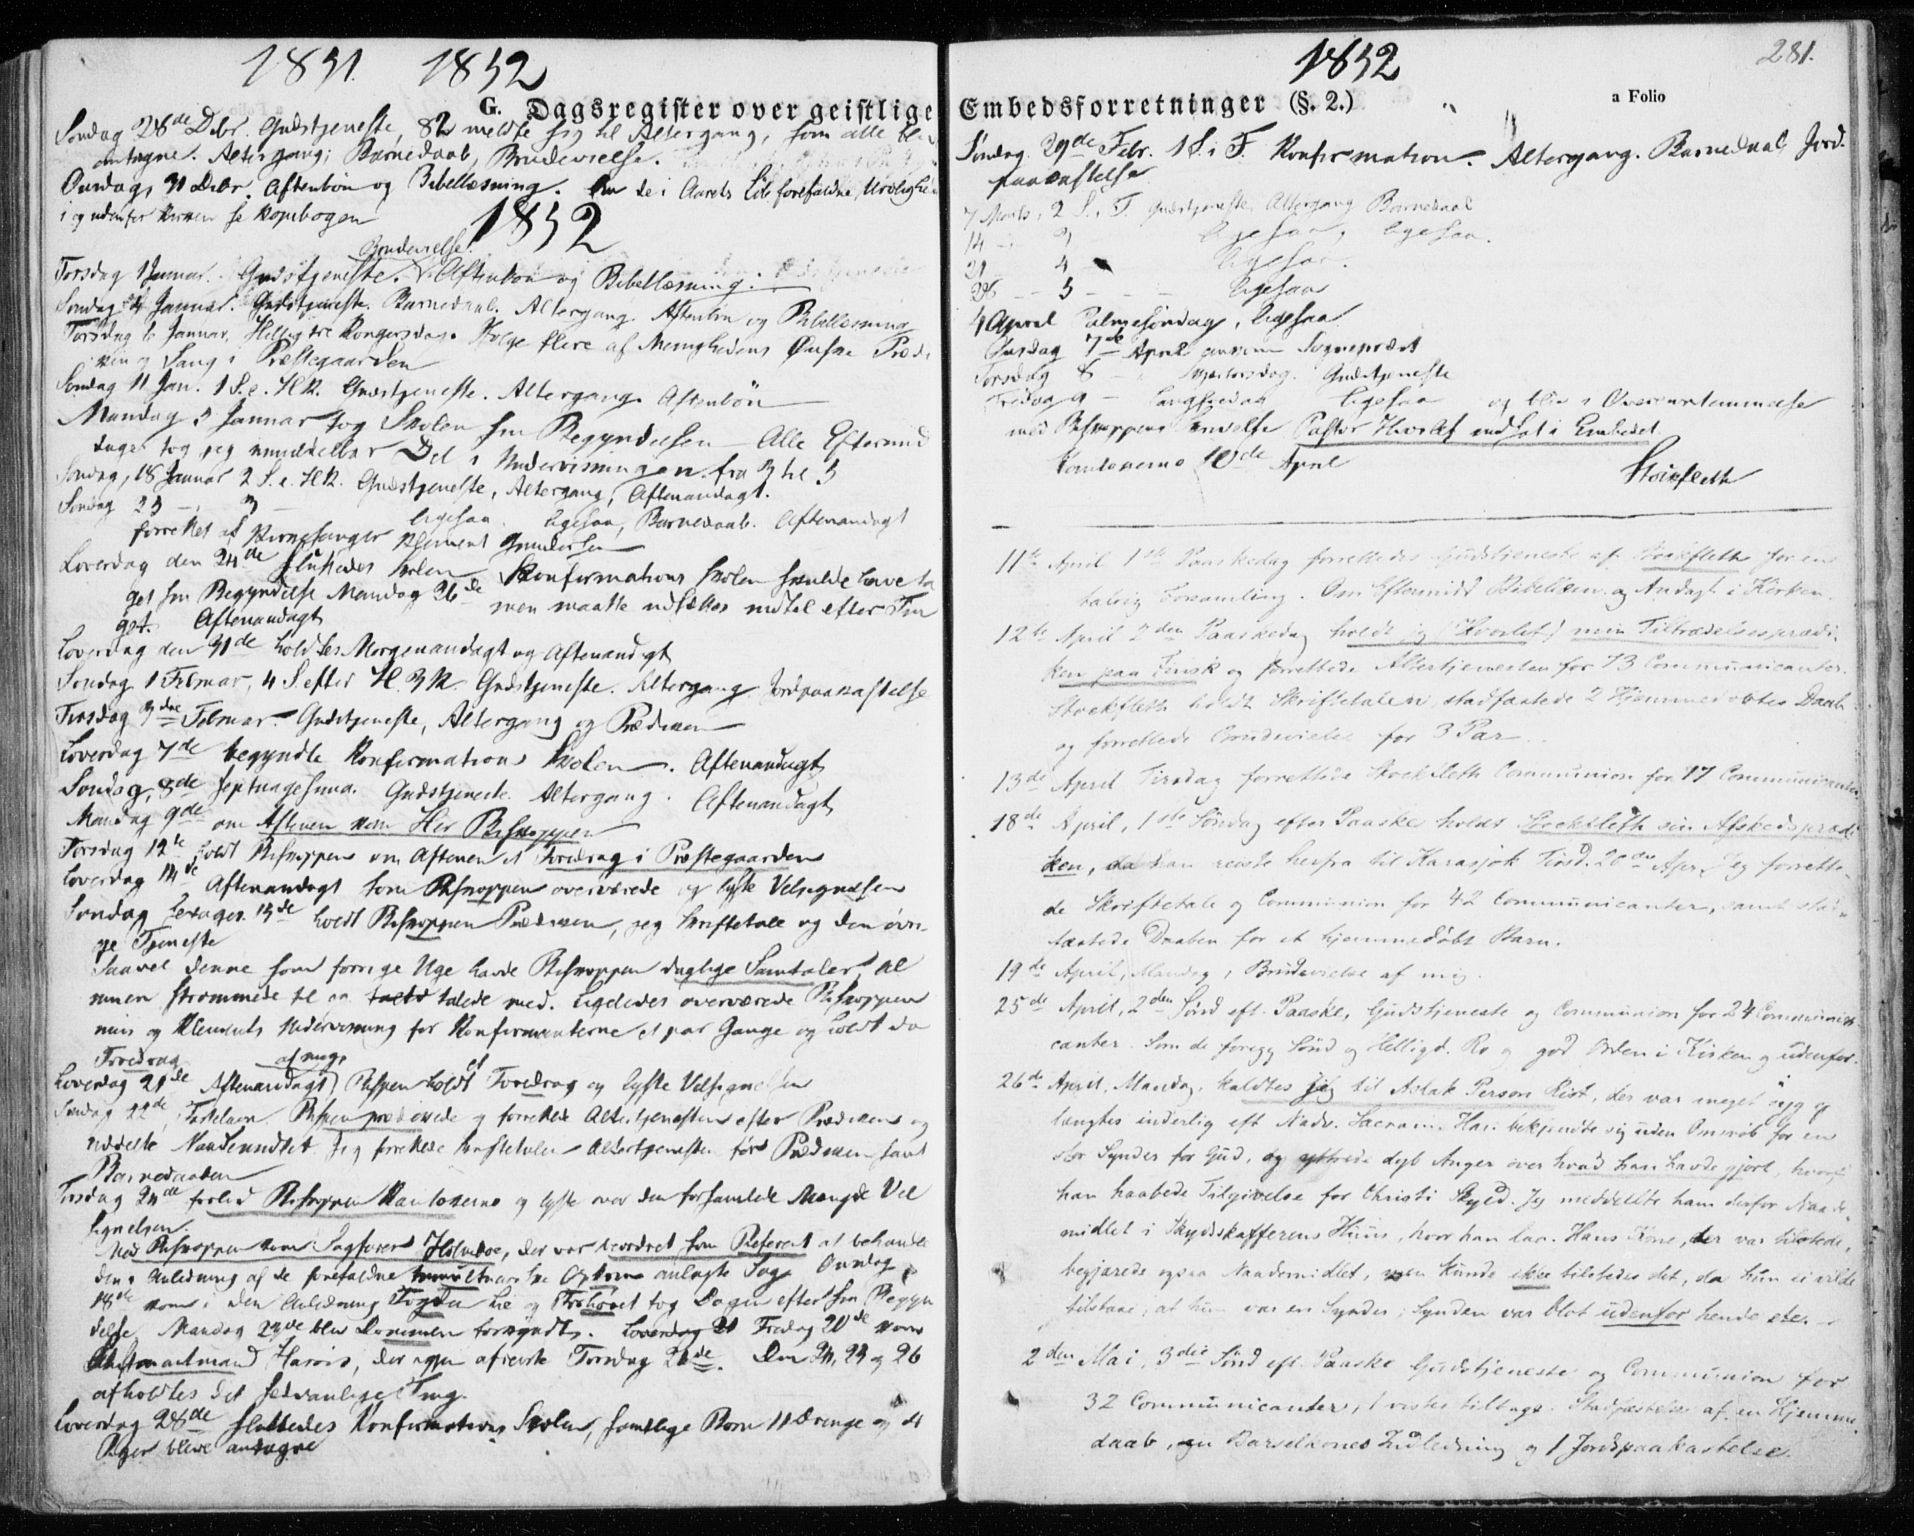 1851. 1852
G. Dagsregister over geistlige
Søndag 28de Debr. Gudstjeneste, 82 meldte sig til Altergang, som alle blev
antagne. Altergang, Barnedaab, Brudevielse.
Onsdag 31 Debr. Aftenbøn og Bibellæsning. Om de i Aarets Løb forefaldne Uroligheder
i og udenfor Kirken se Kopibogen
1852
Brudevielse.
Torsdag 1 Januar. Gudstjeneste. Aftenbøn og Bibellæsning.
Søndag 4 Januar. Gudstjeneste. Barnedaab. Altergang. Aftenbøn og Bibellæsning
Torsdag 6 Januar, Hellig tre Kongersdag. Ifølge flere af Menighedens Ønske Prædi
ken og Sang i Præstegaarden
Søndag 11 Jan. 1 S. e. H.3K. Gudstjeneste. Altergang. Aftenbøn
Mandag 5 Januar tog Skolen sin Begyndelsen. Alle Eftermid
dage tog jeg umiddelbar Del i Undervisningen fra 3 til 5
Søndag, 18 Januar 2 S. e. H3K. Gudstjeneste, Altergang, Aftenandagt.
Søndag 25 - 3 - ligesaa. ligesaa, Barnedaab. Aftenandagt
forrettet af Kirkesanger Klement Gundersen
Løverdag den 24de sluttedes Skolen Konfirmations Skolen skulde have ta
get sin Begyndelse Mandag 26de men maatte udsættes indtil efter Tin
get. Aftenandagt
Løverdag den 31de holdtes Morgenandagt og Aftenandagt
Søndag 1 Februar, 4 S. efter H. 3 K. Gudstjeneste. Altergang. Jordpaakastelse
Tirsdag 3die Februar. Gudstjeneste, Altergang og Prædiken
Løverdag 7de begyndte Konfirmations Skolen. Aftenandagt
Søndag, 8de Septuagesima. Gudstjeneste. Altergang. Aftenandagt
Mandag 9de om Aftenen kom Hr Biskoppen
Torsdag 12te holdt Biskoppen om Aftenen et Foredrag i Præstegaarden
Løverdag 14de Aftenandagt som Biskoppen overværede og lyste Velsignelsen
Søndag Sexages. 15de holdt Biskoppen Prædiken, jeg Skriftetale og den øvri
ge Tjeneste
Saavel denne som forrige Uge havde Biskoppen daglige Samtaler, Al
muen strømmede til og talede med. Ligeledes overværede Biskoppen
min og Klements Undervisning for Konfirmanterne et par Gange og holdt da
Foredrag
af mig, et
Løverdag 21de Aftenandagt Bispen holdt Foredrag og lyste Velsignelsen
Søndag 22de, Fastelavn. Bispen prædikede og forrettede Altertjenesten efter Prædiken og
uddelte Naademidlet. Jeg forrettede Skriftetalen Altertjenesten før Prædiken samt
Barnedaaben
Tirsdag 24de forlod Biskoppen Kautokeino og lyste over den forsamlede Mængde Vel
signelsen.
Med Biskoppen kom Sagfører Holmboe, der var beordret som Referent at behandle
den i Anledning af de forefaldne tumultuariske Optrin anlagte Sag. Onsdag
18de kom i den Anledning Fogden hid og Forhøret tog Dagen efter sin Begyn
delse. Mandag 23de blev Dommen forkyndt. Løverdag 21 Fredag 20de kom
Amtmand Harris, der igjen afreiste Torsdag 26de. Den 24, 25 og 26
afholdtes det sedvanlige Ting.
Løverdag 28de sluttedes Konfirmations Skolen, samtlige Børn 11 Drenge og 14
Piger bleve antagne
281.
1852
Embedsforretninger (§. 2.)
a Folio
Søndag 29de Febr. 1 S. i F. Konfirmation. Altergang. Barnedaab, Jord.
paakastelse
7 Marts, 2 S. i F. Gudstjeneste, Altergang Barnedaab
14 - 3 ligesaa, ligesaa.
21 - 4 - ligesaa.
28 - - 5 - - - ligesaa
4 April Palmesøndag, ligesaa
Onsdag 7de April Sognepræst
Torsdag 8 - Skjærtorsdag. Gudstjeneste
Fredag 9 - Langfredag ligesaa og blev i Overensstemmelse
med Biskoppens Pastor Hvoslef indsat i Embedet
Kautokeino 10de April
Stockfleth
11te April 1ste Paaskedag forrettedes Gudstjeneste af Stockfleth for en
talrig Forsamling. Om Eftermidd. Bibellæsn. og Andagt i Kirken.
12te April 2den Paaskedag holdt jeg (Hvoslef) min Tiltrædelsesprædi-
ken paa Finsk og forrettede Altertjenesten for 73 Communicanter.
Stockfleth holdt Skriftetalen, stadfæstede 2 Hjemmedøbtes Daab
og forrettede Brudevielse for 3 Par.
13de April Tirsdag forrettede Stockfleth Communion for 17 Communicanter.
18de April, 1ste Søndag efter Paaske holdt Stockfleth sin Afskedsprædi
ken, da han reiste herfra til Karasjok Tirsd. 20de Apr. Jeg forrette-
de Skriftetale og Communion for 42 Communicanter, samt stad-
fæstede Daaben for et hjemmedøbt Barn.
19de April, Mandag, Brudevielse af mig.
25de April, 2den Sønd. eft. Paaske, Gudstjeneste og Communion for 24 Communi-
canter. Som de foreg. Sønd og Helligd. Ro og god Orden i Kirken og udenfor.
26de April, Mandag, kaldtes jeg til Aslak Person Rist, der var meget syg og
længtes inderlig eft. Nadv. Sacram. Han bekjendte sig uden Omsvøb for en
stor Synder for Gud, og yttrede dyb Anger over hvad han havde gjort, hvorfor
han haabede Tilgivelse for Christi Skyld. Jeg meddelte ham derfor Naade-
midlet i Skydsskafferens Huus, hvor han laa. Hans Kone, der var tilstede,
begjærede ogsaa Naademidlet, men kunde ikke tilstedes det, da hun ei vilde
tilstaae, at hun var en Synder; Synden var blot udenfor hende etc.
2den Mai, 3die Sønd eft. Paaske Gudstjeneste og Communion for
32 Communicanter, Stadfæstelse af en Hjemme
daab, en Barselkones Indledning og 1 Jordpaakastelse.